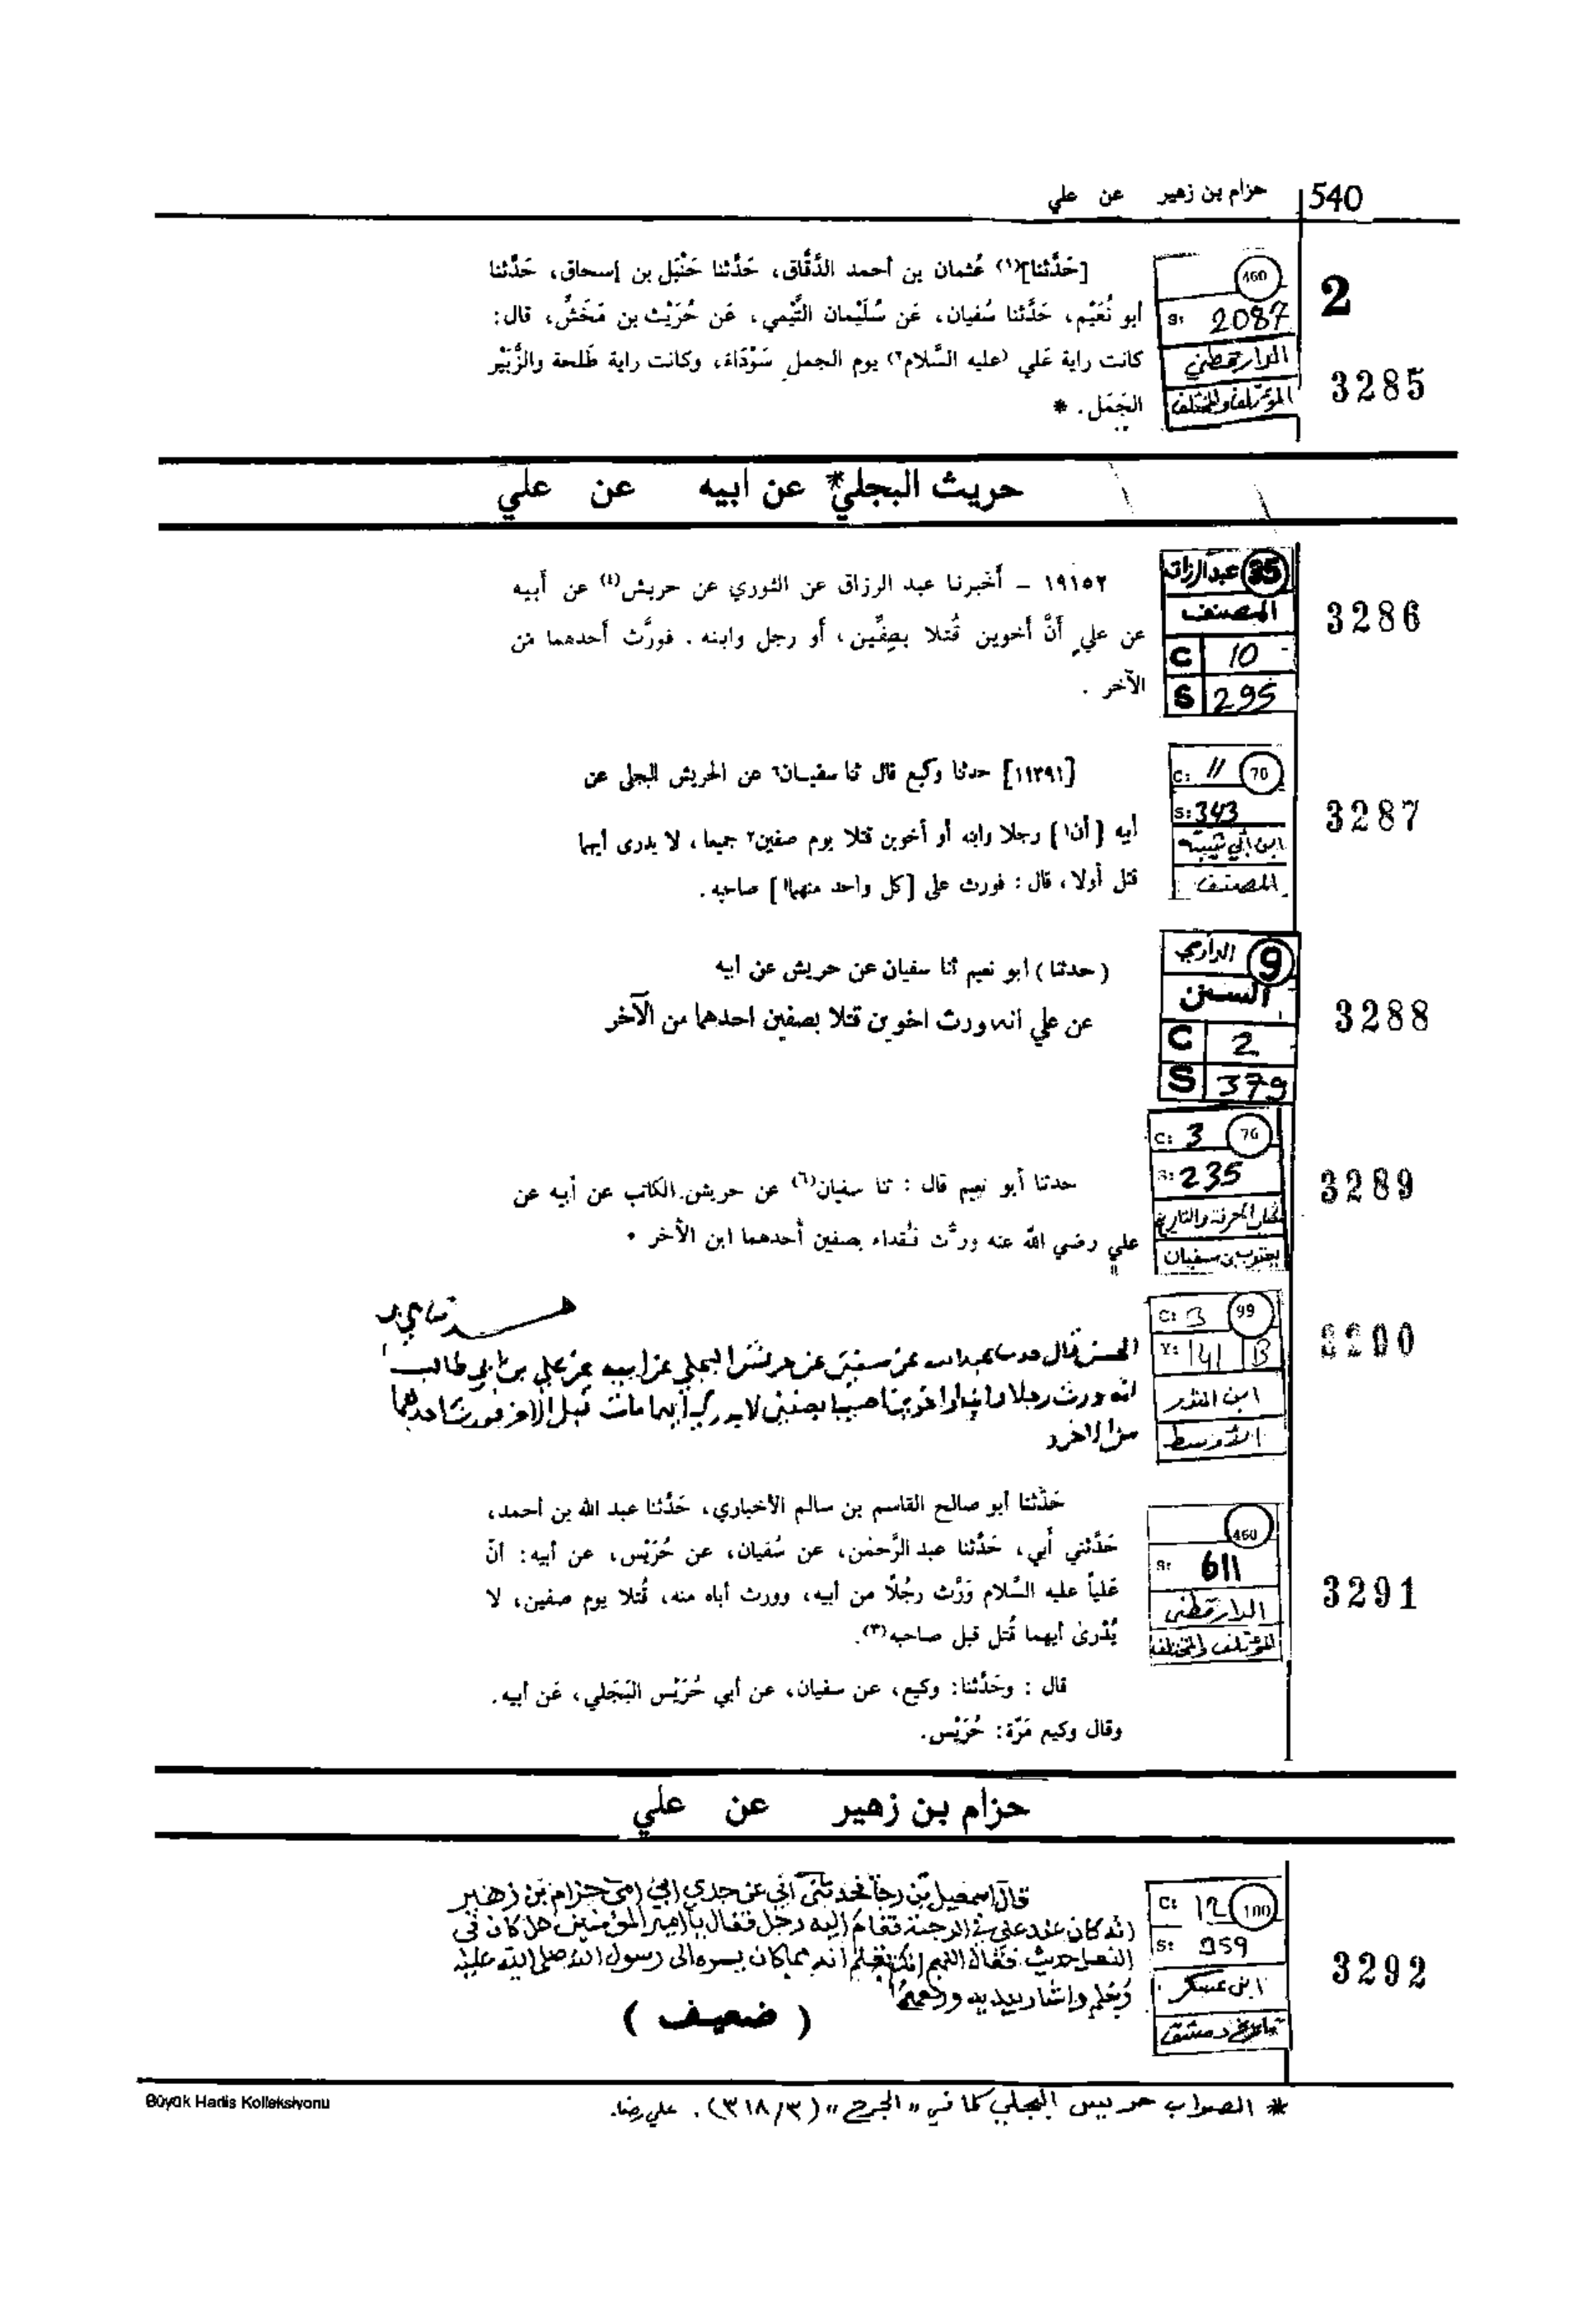 540 حزام بن زهير عن علي
2
3285
460
S: 2087
الدارقطني
المؤتلف والمختلف
[حَدَّثنا](١) عُثمان بن أحمد الدَّقَّاق، حَدَّثنا حَنْبَل بن إسحاق، حَدَّثنا
أبو نُعَيْم، حَدَّثنا سُفيان، عَن سُلَيْمان التَّيْمي، عَن حُرَيْث بن مَخَشٌ، قال:
كانت راية عَلي (عليه السَّلام٢) يوم الجمل سَوْدَاءَ، وكانت راية طَلحة والزُّبَيْر
الجَمَل. *
حريث البجلي* عن ابيه عن علي
3286
35 عبدالرزاق
المصنف
C 10
S 295
١٩١٥٢ – أخبرنا عبد الرزاق عن الثوري عن حريش(٤) عن أبيه
عن علي أنَّ أخوين قُتلا بصِفِّين، أو رجل وابنه . فورَّث أحدهما من
الآخر .
3287
C: 11 70
S: 343
ابن أبي شيبة
المصنف
[١١٣٩١] حدثنا وكيع قال ثنا سفيان٦ عن الحريش البجلى عن
أبيه [أن١] رجلا وابنه أو أخوين قتلا يوم صفين٢ جميعا، لا يدرى أيهما
قتل أولا، قال: فورث على [كل واحد منهما] صاحبه.
3288
9 الدارمي
السنن
C 2
S 379
(حدثنا) ابو نعيم ثنا سفيان عن حريش عن ابيه
عن علي انه ورث اخوين قتلا بصفين احدهما من الآخر
3289
C: 3 76
S: 235
كتاب المعرفة والتاريخ
يعقوب بن سفيان
حدثنا أبو نعيم قال : ثنا سفيان(٦) عن حريش الكاتب عن أبيه عن
علي رضي الله عنه ورَّث فقداء بصفين أحدهما ابن الأخر .
3290
C: 3 99
Y: 141 B
ابن المنذر
الأوسط
سفين عن حريش البجلي عن ابيه عن علي بن ابي طالب
انه ورث رجلا وابنه او اخوين اصيبا بصفين لا يدرى ايهما مات قبل الاخر فورث احدهما
من الاخر
3291
460
S: 611
الدارقطني
المؤتلف والمختلف
حَدَّثنا أبو صالح القاسم بن سالم الأخباري، حَدَّثنا عبد الله بن أحمد،
حَدَّثني أَبي، حَدَّثنا عبد الرَّحمٰن، عن سُفيان، عن حُرَيْس، عن أبيه: أنّ
عَلياً عليه السَّلام وَرَّث رجُلًا من أبيه، وورث أباه منه، قُتلا يوم صفين، لا
يُدْرىٰ أيهما قُتل قبل صاحبه(٣).
قال : وحَدَّثنا: وكيع، عن سفيان، عن أبي حُرَيْس البَجَلي، عَن أبيه.
وقال وكيع مَرّة: حُرَيْس.
حزام بن زهير عن علي
3292
C: 12 100
S: 959
ابن عساكر
تاريخ دمشق
قال اسمعيل بن رجا فحدثني ابي عن جدي ابي امي حزام بن زهير
انه كان عند علي في الرحبة فقام اليه رجل فقال يا امير المؤمنين هل كان في
النعل حديث فقال اللهم انك تعلم انه مما كان يسره الى رسول الله صلى الله عليه
وسلم واشار بيديه ورفعهما
( ضعيف )
* الصواب حريس البجلي كما في "الجرح" (٣/٣١٨). علي رضا.
Büyük Hadis Kolleksiyonu